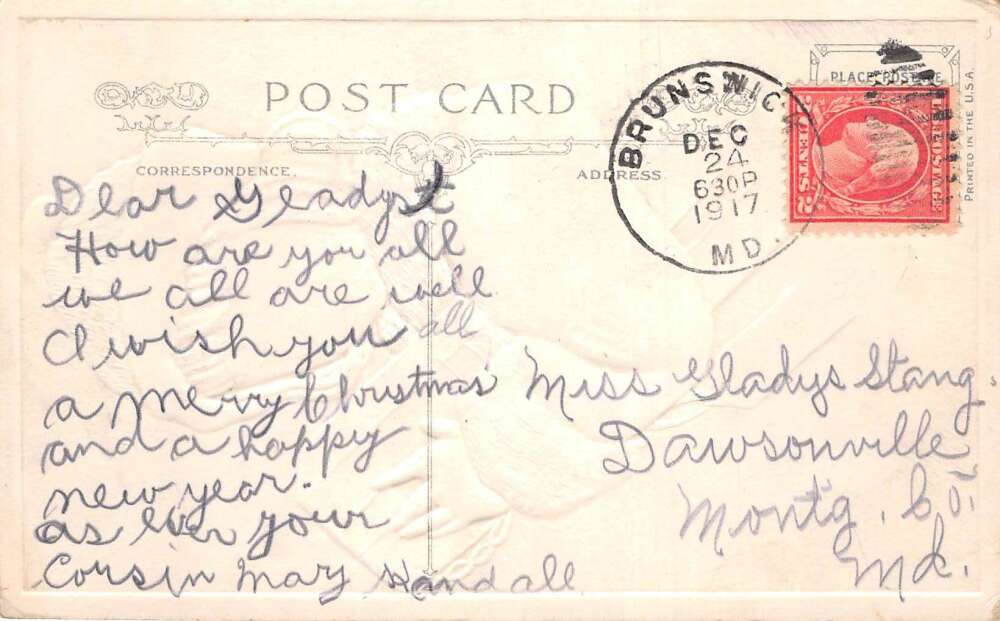 POST CARD
CORRESPONDENCE.
ADDRESS
PLACE POSTAGE
PRINTED IN THE U.S.A.
BRUNSWICK
DEC
24
630P
1917
MD.
CENTS 2
Dear Gladys
How are you all
we all are well
I wish you all
a merry Christmas
and a happy
new year.
as ever your
Cousin May Handall
Miss Gladys Stang.
Dawsonville
Montg. Co.
Md.